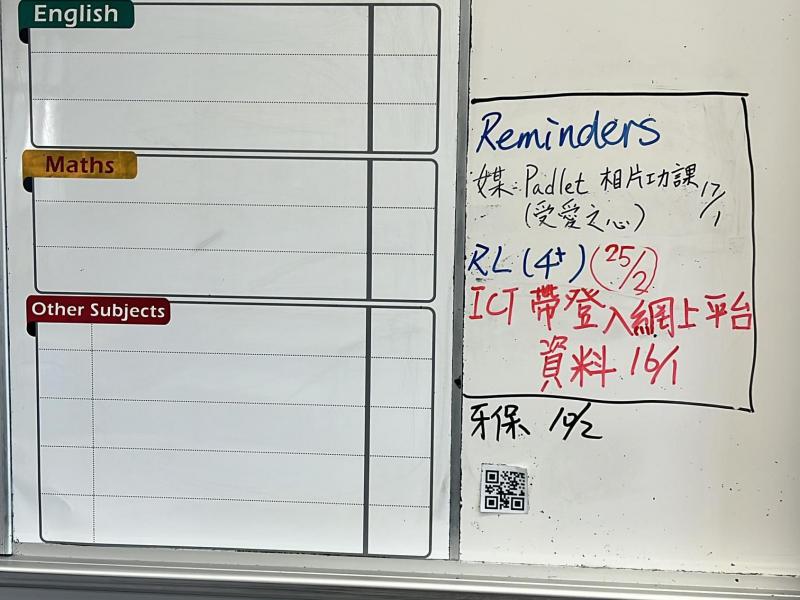 English
Maths
Other Subjects
Reminders
媒: Padlet 相片功課 17/1
(受愛之心)
RL (4+) 25/2
ICT 帶登入網上平台
資料 16/1
牙保 10/2